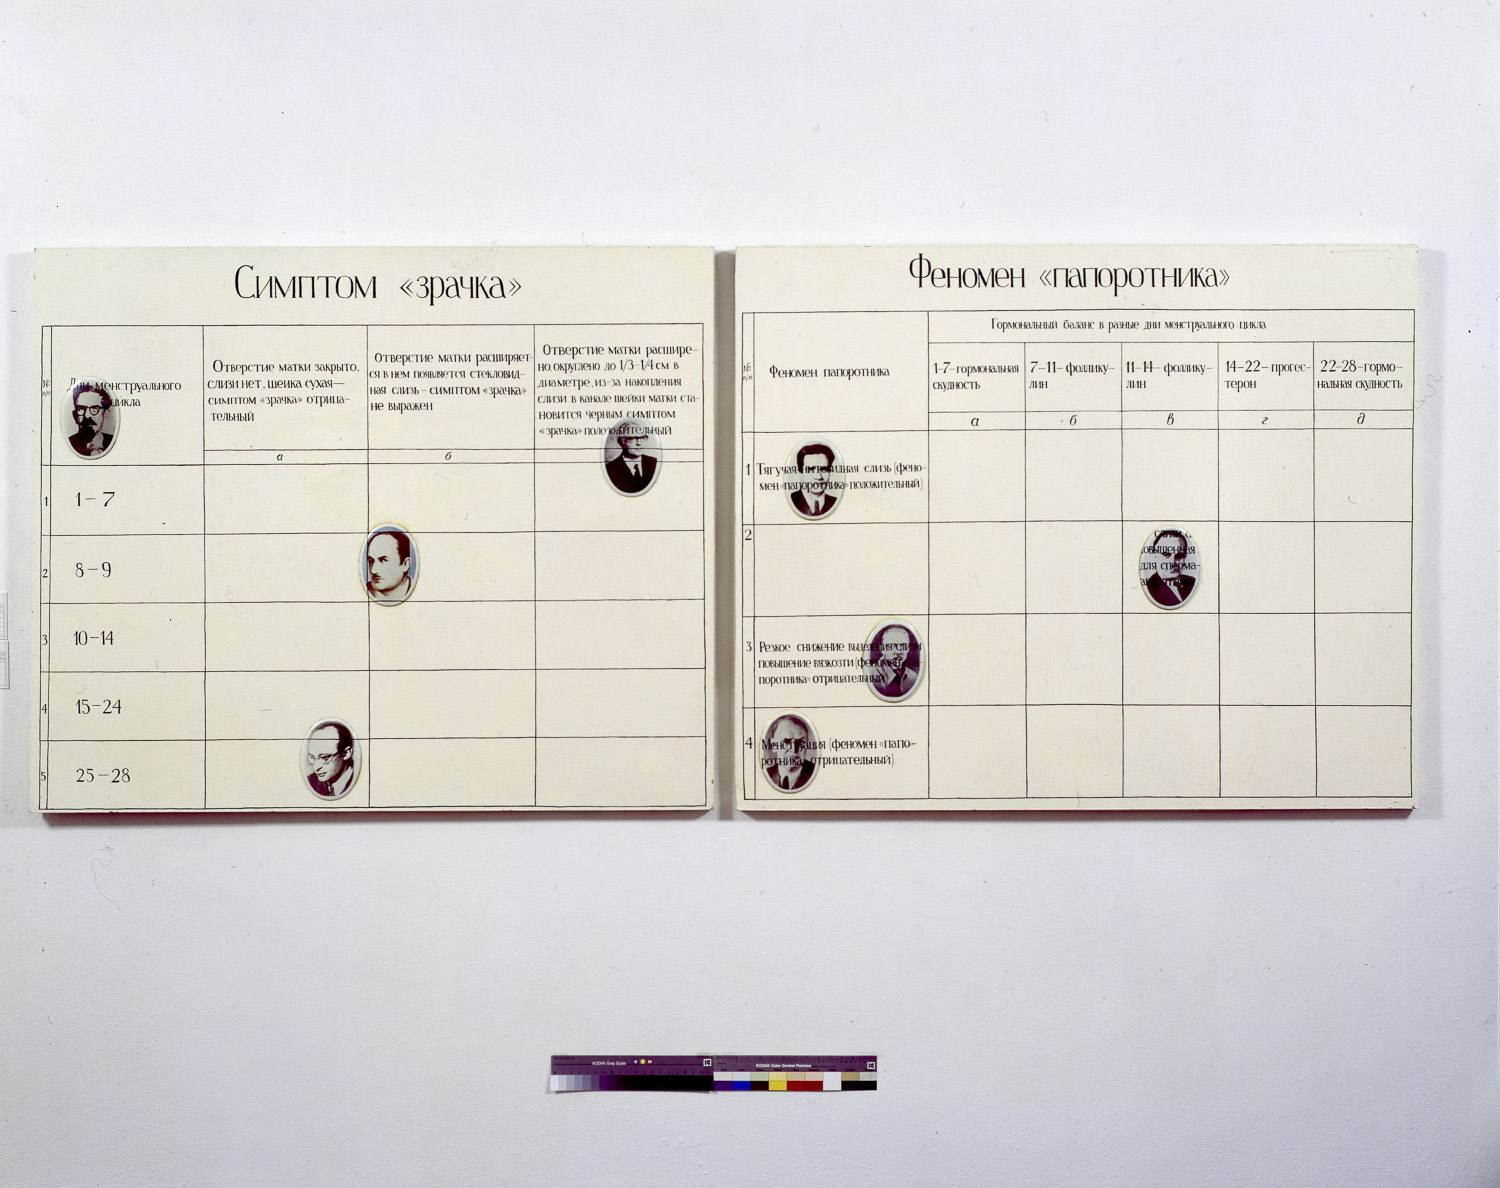 Симптом «зрачка»
№
п/п
Дни менструального
цикла
Отверстие матки закрыто,
слизи нет, шейка сухая—
симптом «зрачка» отрица-
тельный
Отверстие матки расширяет-
ся в нем появляется стекловид-
ная слизь – симптом «зрачка»
не выражен
Отверстие матки расшире-
но, округлено до 1/3–1/4 см в
диаметре, из-за накопления
слизи в канале шейки матки ста-
новится черным симптом
«зрачка» положительный
а
б
1
1–7
2
8–9
3
10–14
4
15–24
5
25–28
Феномен «папоротника»
№
п/п
Феномен папоротника
Гормональный баланс в разные дни менструального цикла
1–7–гормональная
скудность
7–11–фоллику-
лин
11–14–фоллику-
лин
14–22–прогес-
терон
22–28–гормо-
нальная скудность
а
б
в
г
д
1
Тягучая нитевидная слизь (фено-
мен «папоротника» положительный)
2
повышенная
для сперма-
3
Резкое снижение выделения слизи
повышение вязкозти (феномен «па-
поротника» отрицательный)
4
Менструация (феномен «папо-
ротника» отрицательный)
KODAK Gray Scale
C
Y
M
KODAK Color Control Patches